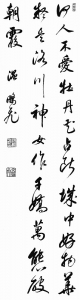 何人不愛牡丹花占斷城中好物華
疑是洛川神女作千嬌萬態破
朝霞